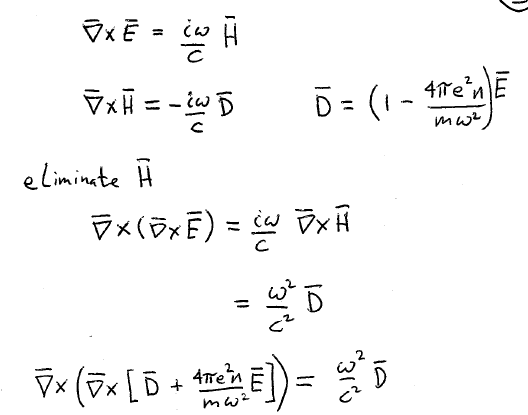 ∇̄×Ē = iω/c H̄
∇̄×H̄ = -iω/c D̄    D̄ = (1 - 4πe²n/mω²)Ē
eliminate H̄
∇̄×(∇̄×Ē) = iω/c ∇̄×H̄
= ω²/c² D̄
∇̄×(∇̄×[D̄ + 4πe²n/mω² Ē]) = ω²/c² D̄